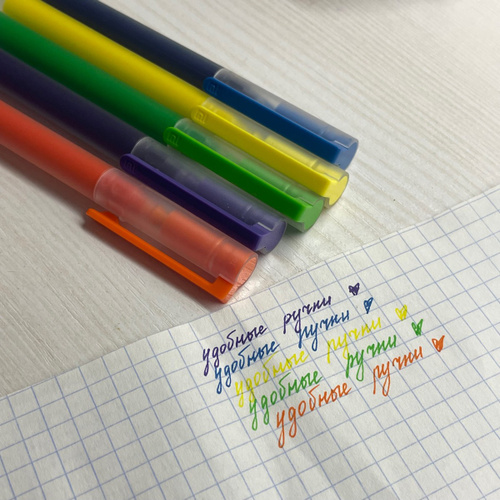 удобные ручки
удобные ручки
удобные ручки
удобные ручки
удобные ручки